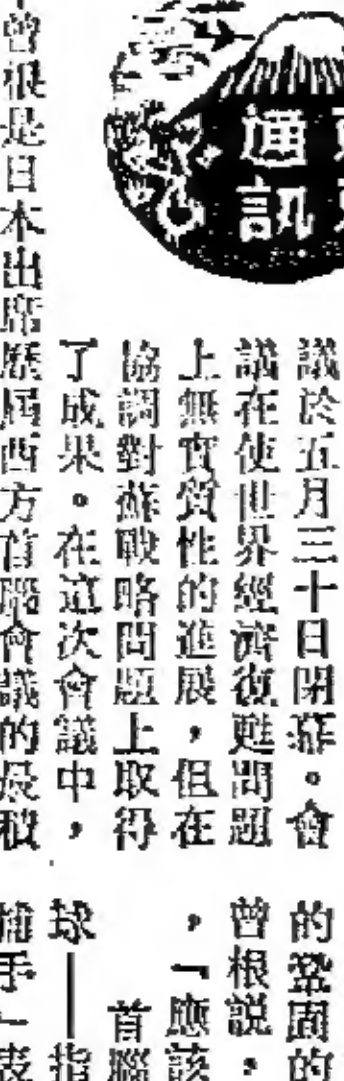 通訊
議於五月三十日閉幕。會
議在使世界經濟復甦問題
上無實質性的進展,但在
協調對蘇戰略問題上取得
了成果。在這次會議中,
曾根是日本出席歷屆西方首腦會議的最積
的鞏固的
曾根說,
,「應該
首腦
球——指
捕手」表